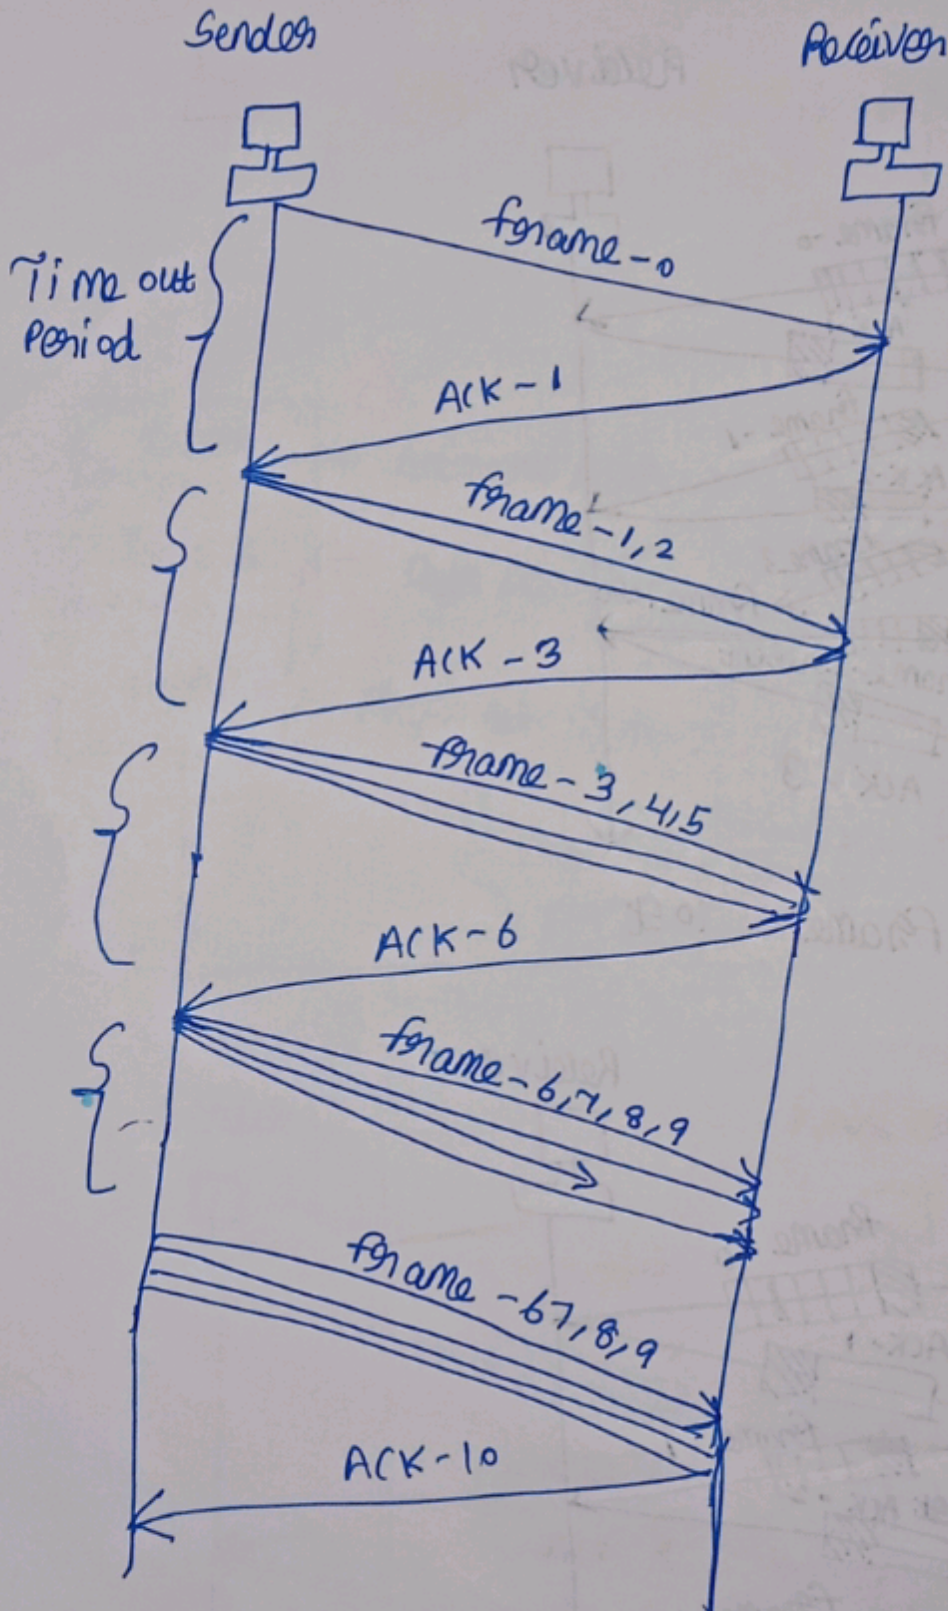 Sender
Receiver
frame-0
Time out
Period
ACK-1
frame-1,2
ACK-3
frame-3,4,5
ACK-6
frame-6,7,8,9
frame-67,8,9
ACK-10